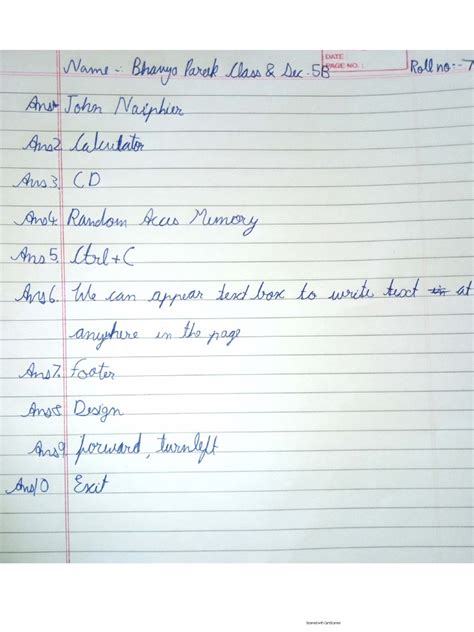 DATE
PAGE NO. :
Name :- Bhavya Parek Class & Sec - 5B Roll no :- 7
Ans1 John Naiphier
Ans2 Calculator
Ans3. CD
Ans4. Random Acces Memory
Ans5. Ctrl + C
Ans6. We can appear text box to write text in at
anywhere in the page
Ans7. Footer
Ans8 Design
Ans9 forward, turnleft
Ans10 Exit
Scanned with CamScanner